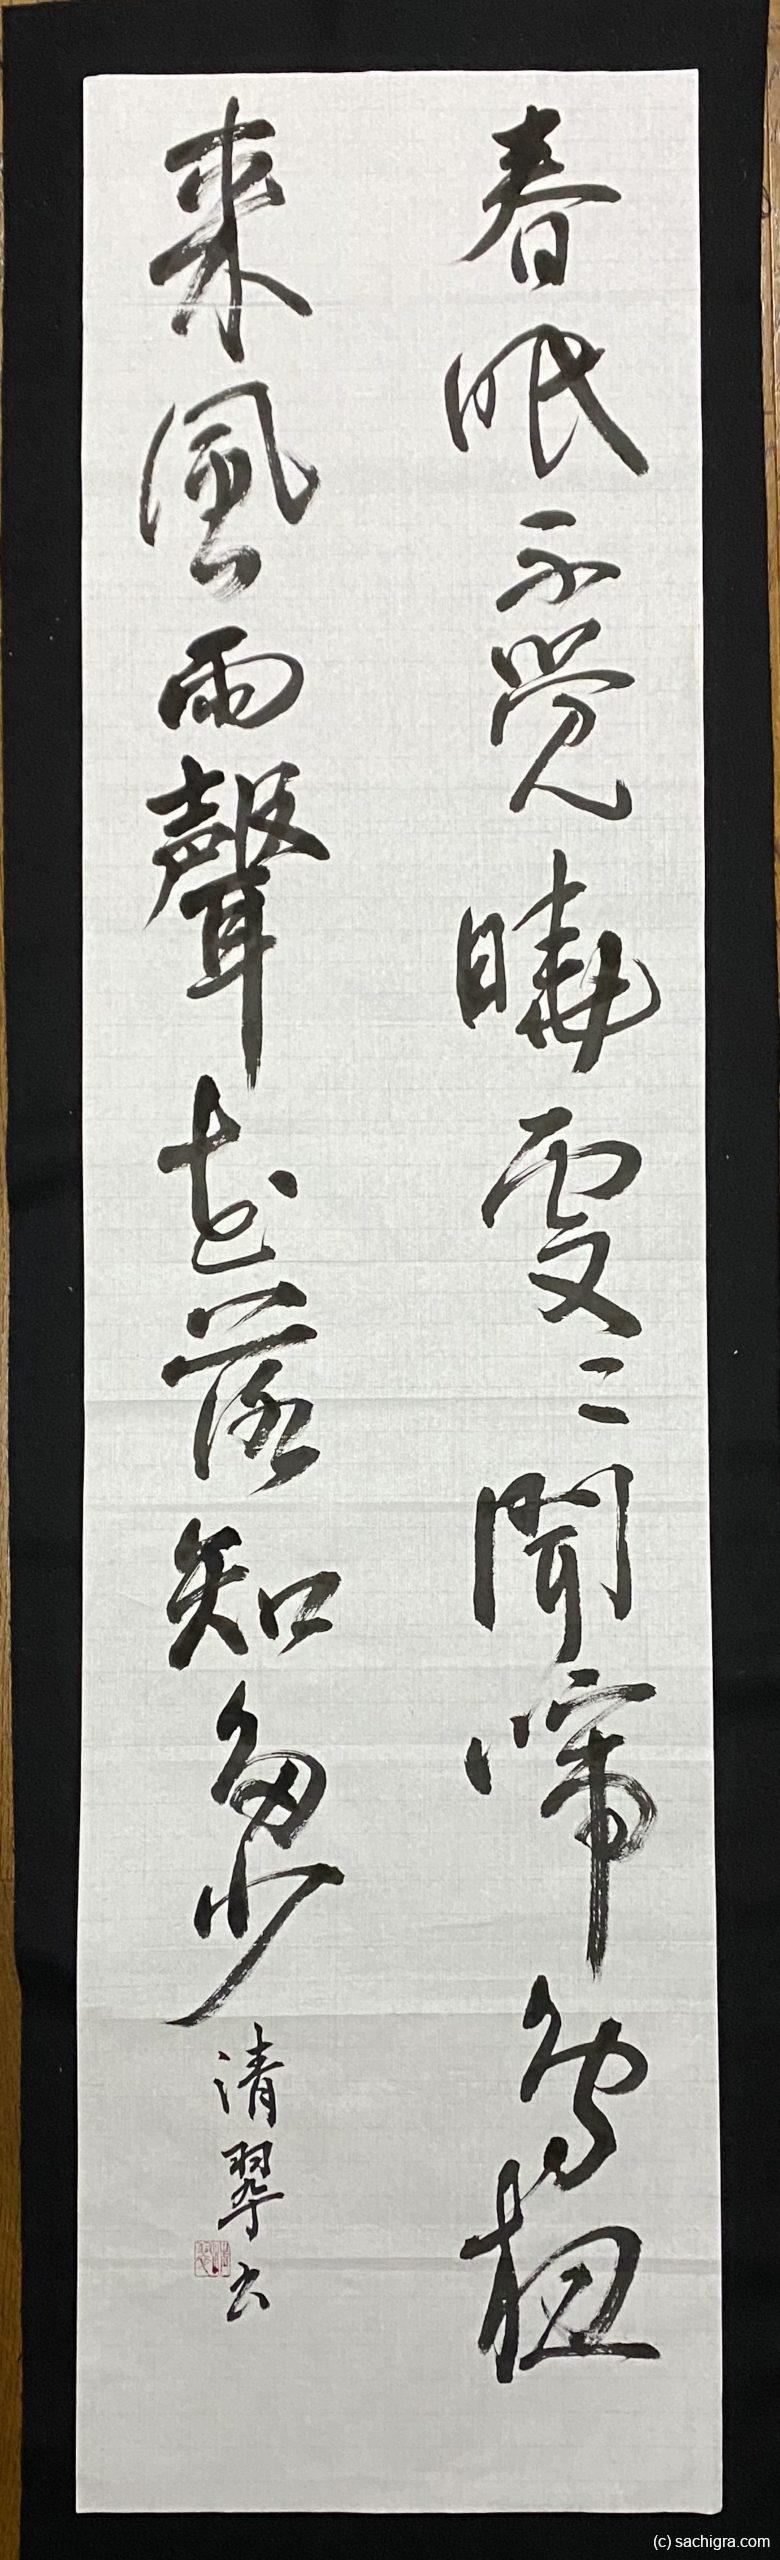 春眠不覚曉處〻聞啼鳥夜
来風雨聲花落知多少
清翠書
(c) sachigra.com